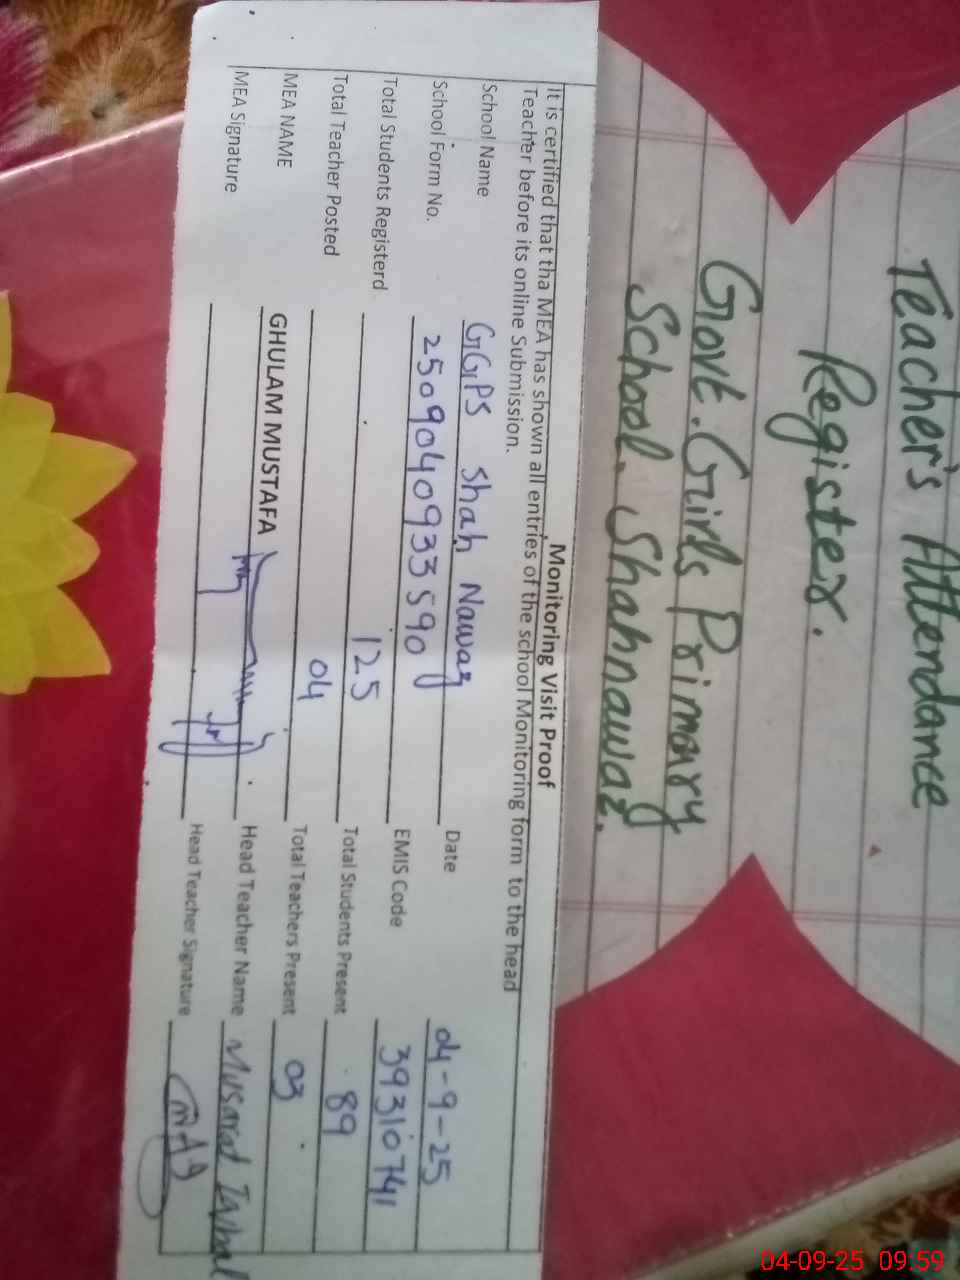 Teacher's Attendance
Register.
Govt. Girls Primary
School. Shahnawaz.
Monitoring Visit Proof
It is certified that tha MEA has shown all entries of the school Monitoring form to the head
Teacher before its online Submission.
School Name GGPS Shah Nawaz Date 04-9-25
School Form No. 2509040933590 EMIS Code 39310741
Total Students Registerd 125 Total Students Present 89
Total Teacher Posted 04 Total Teachers Present 03
MEA NAME GHULAM MUSTAFA Head Teacher Name Musarat Iqbal
MEA Signature Head Teacher Signature
04-09-25 09:59